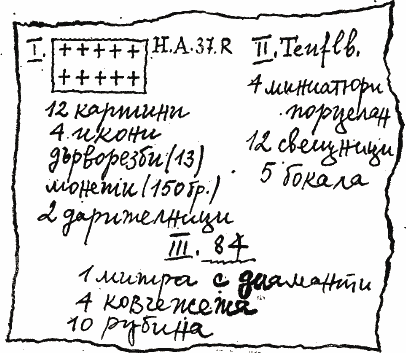 I. H.A.37.R
12 картини
4 икони
дърворезби (13)
монети (150 бр.)
2 дарителници
II. Teuflb.
4 миниатюри
порцелан
12 свещници
5 бокала
III. 84
1 митра с диаманти
4 ковчежета
10 рубина